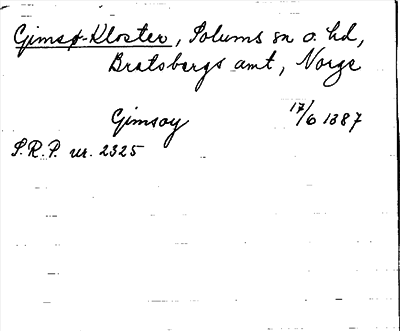 Gimsø-Kloster, Solums sn o. hd,
Bratsbergs amt, Norge
Gimsoy 17/6 1387
S.R.P. nr. 2325